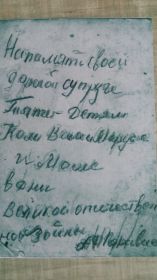 На память своей
дорогой супруге
Тапе Детям
Коли Вовы Маруси
и Мани
в дни
Великой отечествен
ной войны